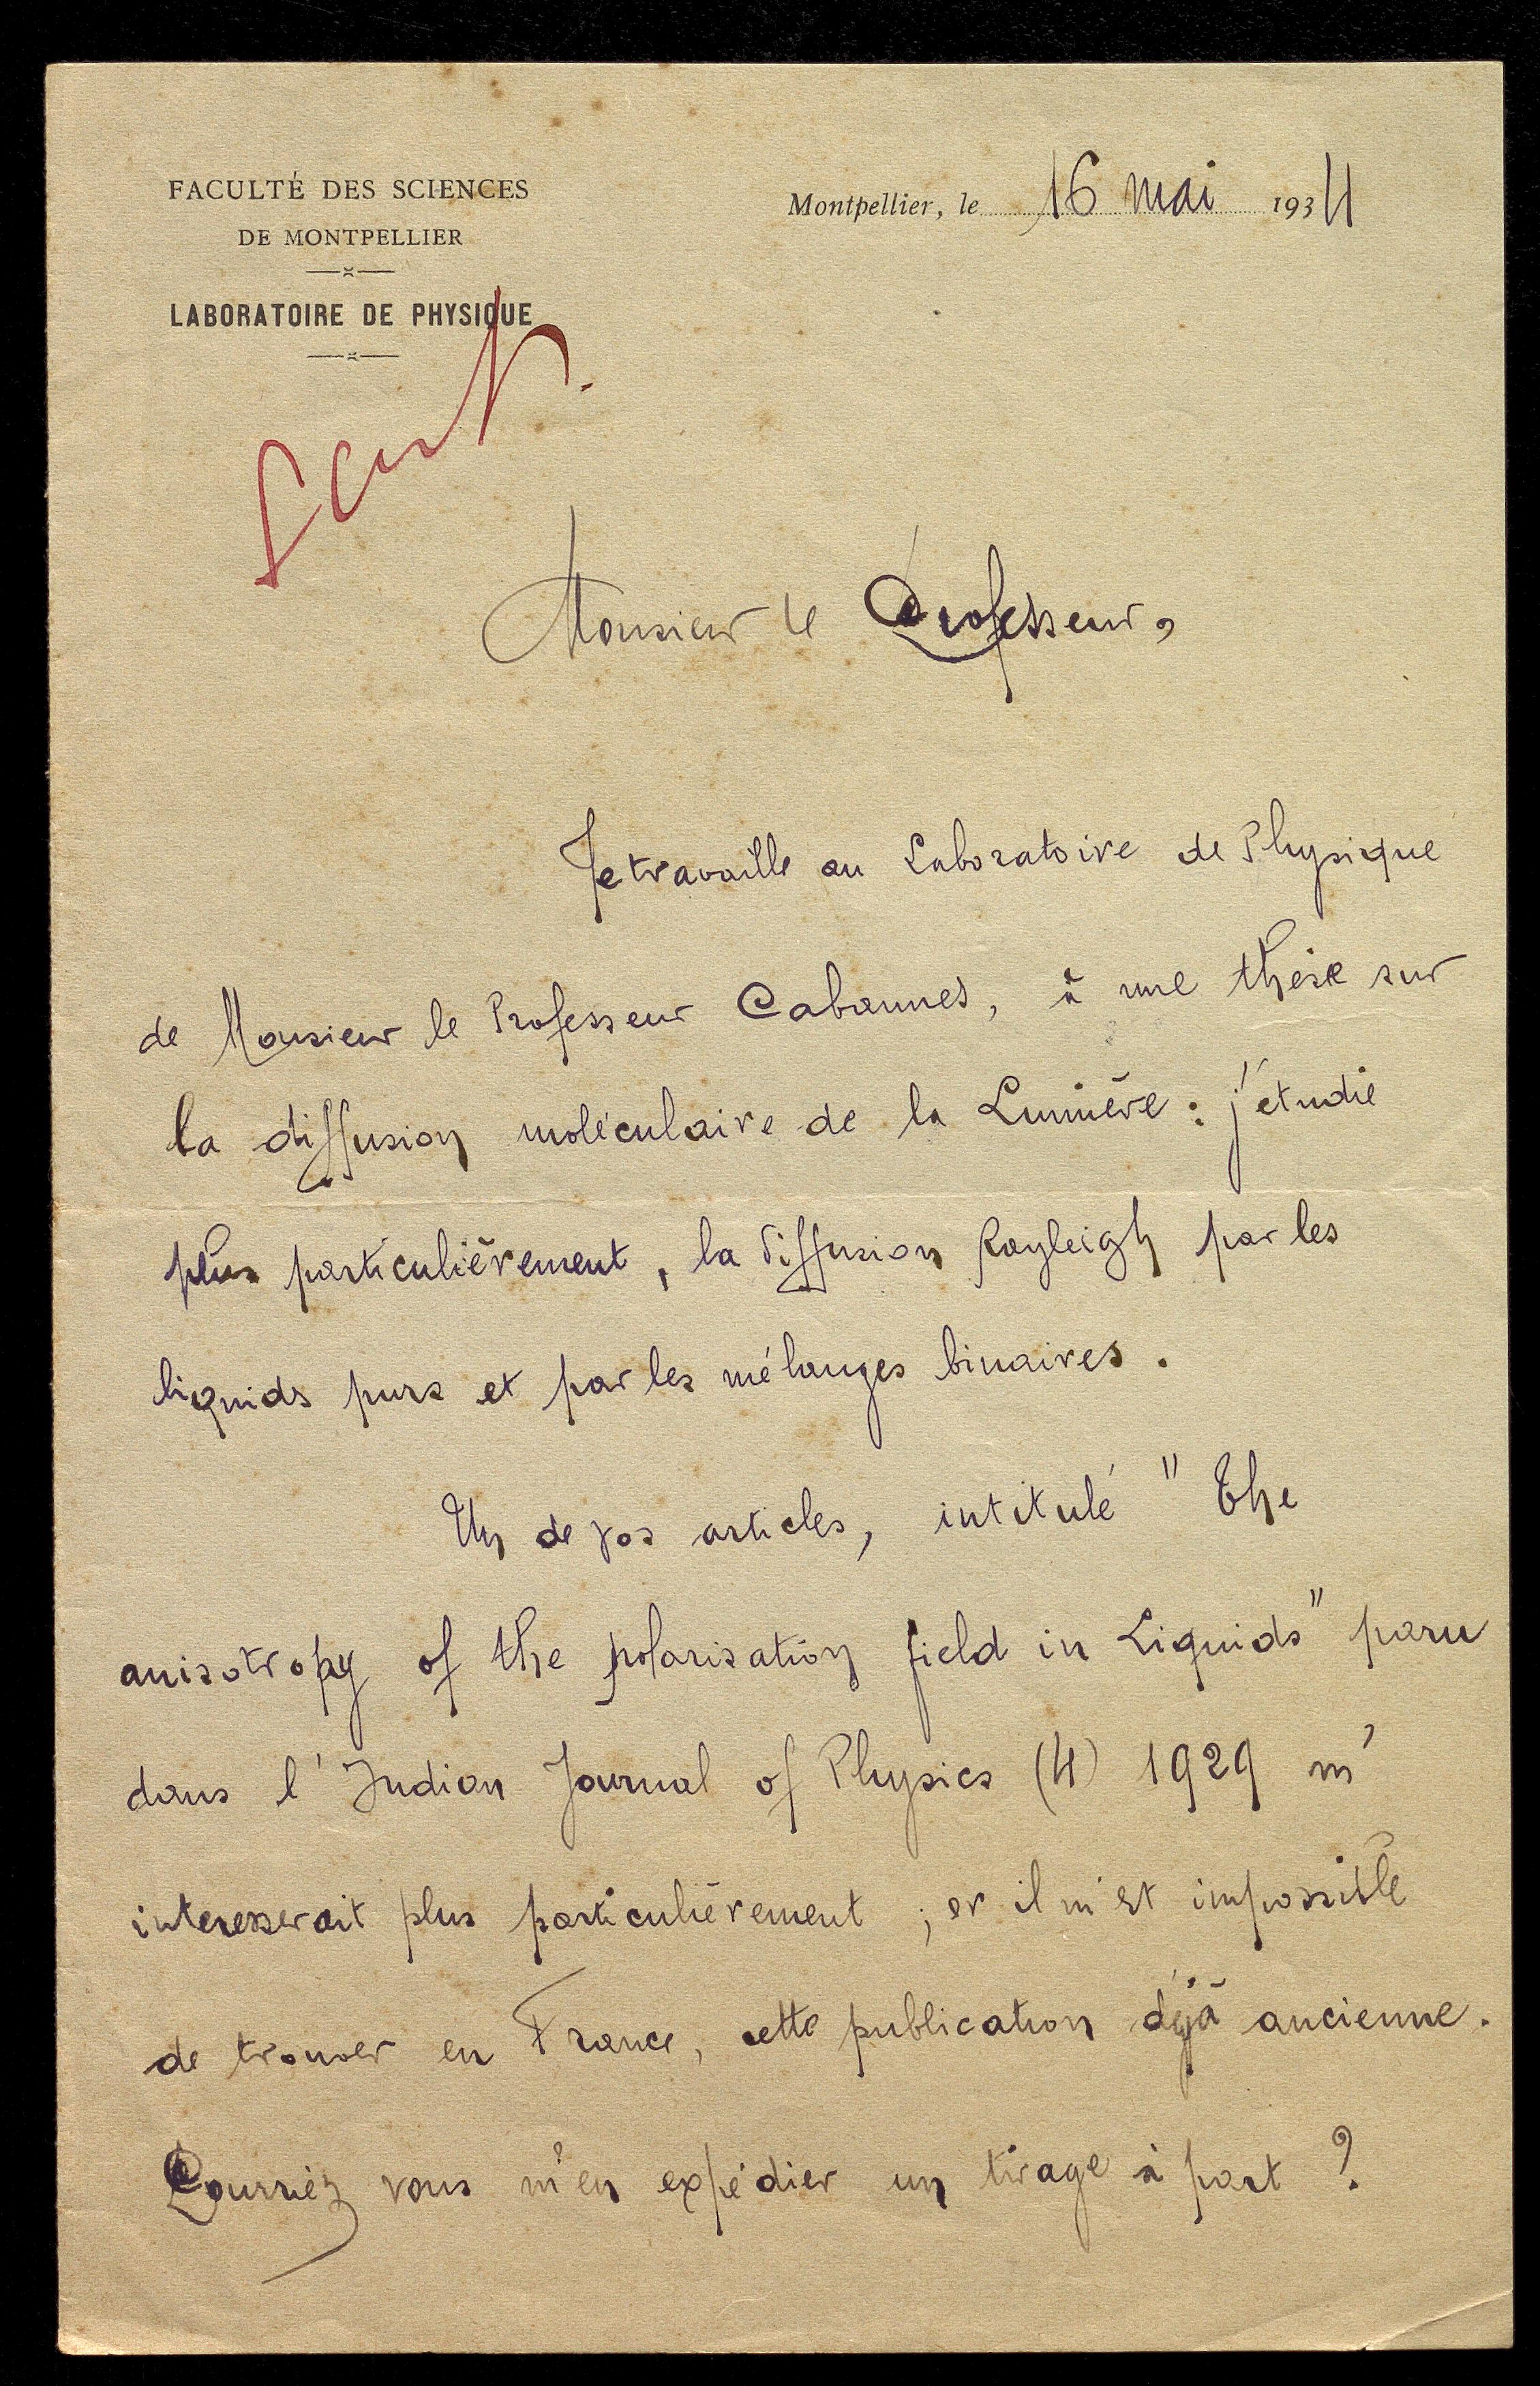 FACULTÉ DES SCIENCES
DE MONTPELLIER
LABORATOIRE DE PHYSIQUE
Montpellier, le 16 mai 1934
Sent.
Monsieur le Professeur,
Je travaille au Laboratoire de Physique
de Monsieur le Professeur Cabannes, à une thèse sur
la diffusion moléculaire de la Lumière : j'étudie
plus particulièrement, la diffusion Rayleigh par les
liquids purs et par les mélanges binaires.
Un de vos articles, intitulé "The
anisotropy of the polarisation field in Liquids" paru
dans l'Indian Journal of Physics (4) 1929 m'
interesserait plus particulièrement ; or il m'est impossible
de trouver en France, cette publication déjà ancienne.
Pourriez vous m'en expédier un tirage à part ?